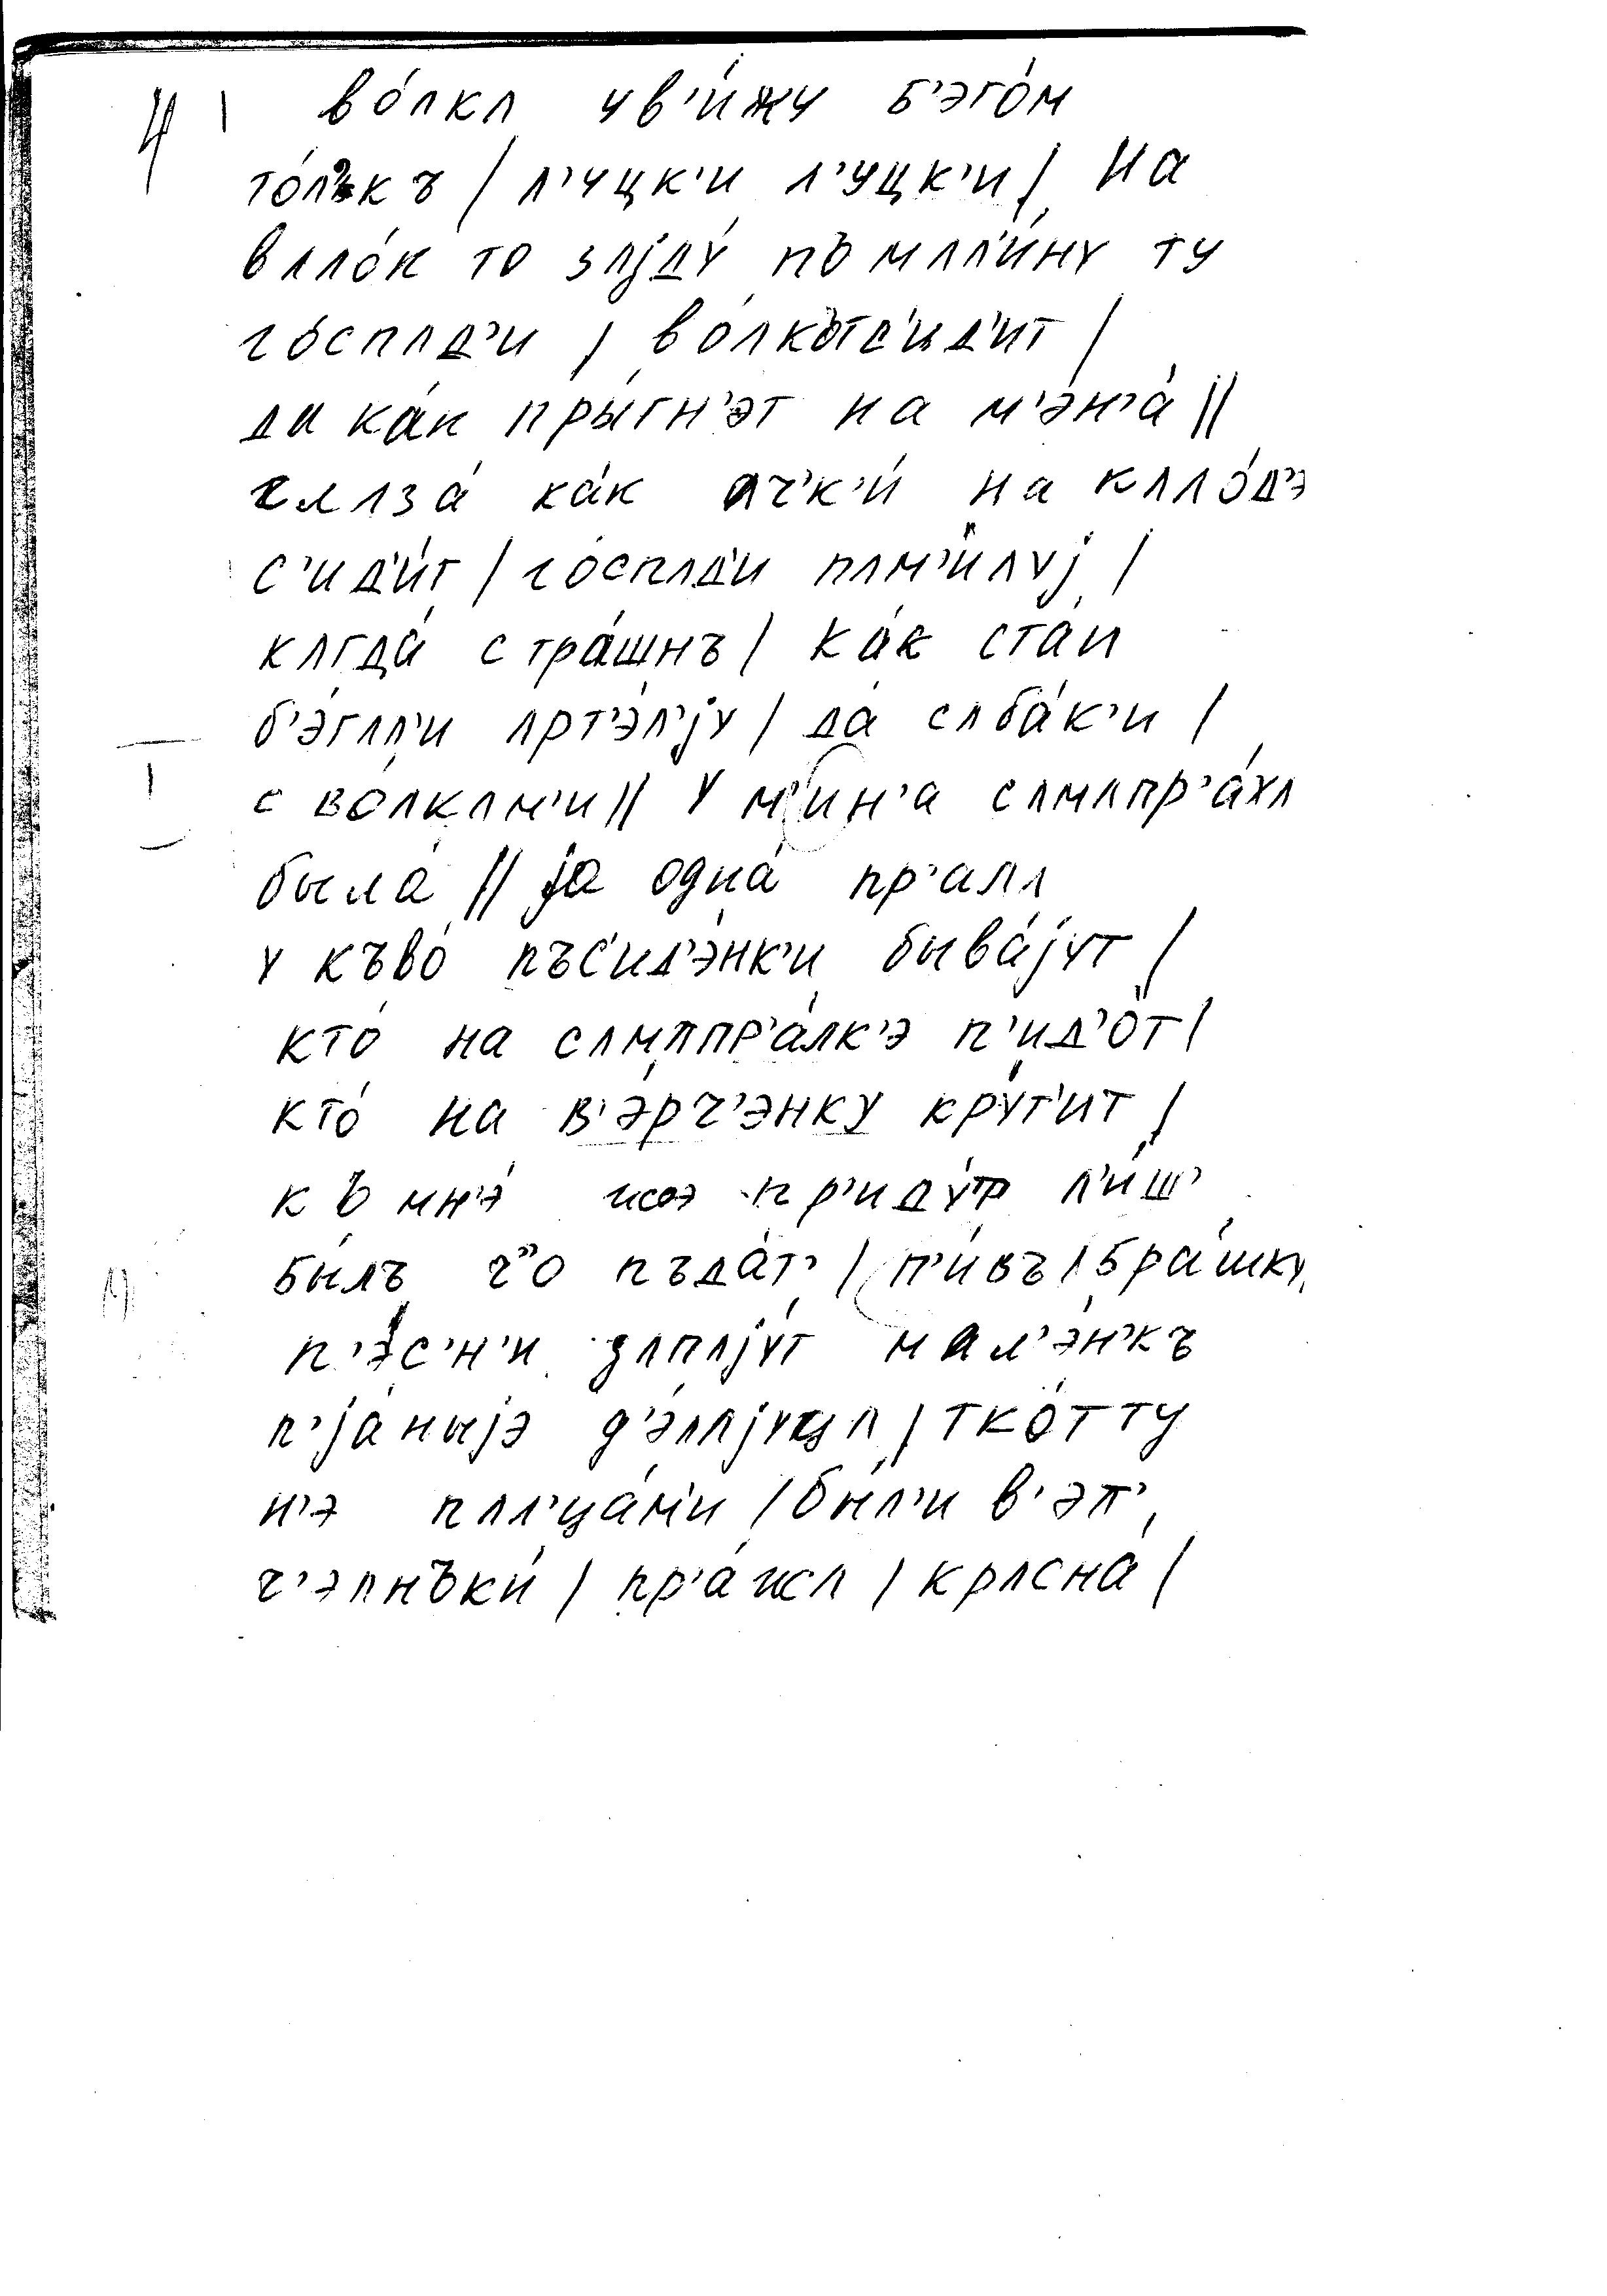 4 во́лкʌ ув'и́жу б'эго́м
то́л'къ / л'уцк'и л'уцк'и / на
вʌло́к то зʌjду́ пъ мʌл'и́ну ту
го́спʌд'и / во́лкътс'ид'ит /
да ка́к пры́гн'эт на м'эн'а́ //
глʌза́ ка́к ʌч'к'и́ на кʌло́д'э
с'ид'и́т / го́спʌд'и пʌм'и́луj /
кʌгда́ стра́шнъ / ка́к ста́и
б'э́гʌл'и ʌрт'э́л'jу / да́ сʌба́к'и /
с во́лкʌм'и // у м'ин'а сʌмʌпр'а́хʌ
была́ // jа одна́ пр'алʌ
у къво́ пъс'ид'э́нк'и быва́jут /
кто́ на сʌмʌпр'а́лк'э п'ид'о́т /
кто́ на в'э́рч'энку кру́т'ит /
къ мн'э́ жэ пр'иду́т л'и́ш'
бы́лъ ч'о пъда́т' / п'и́въ / бра́шку
п'э́с'н'и зʌпʌjу́т мал'э́н'къ
п'jа́ныjэ д'э́лʌjуцʌ / тко́т ту
н'э пʌл'ца́м'и / бы́л'и в'эт'
ч'элнъки́ / пр'а́жʌ / крʌсна́ /